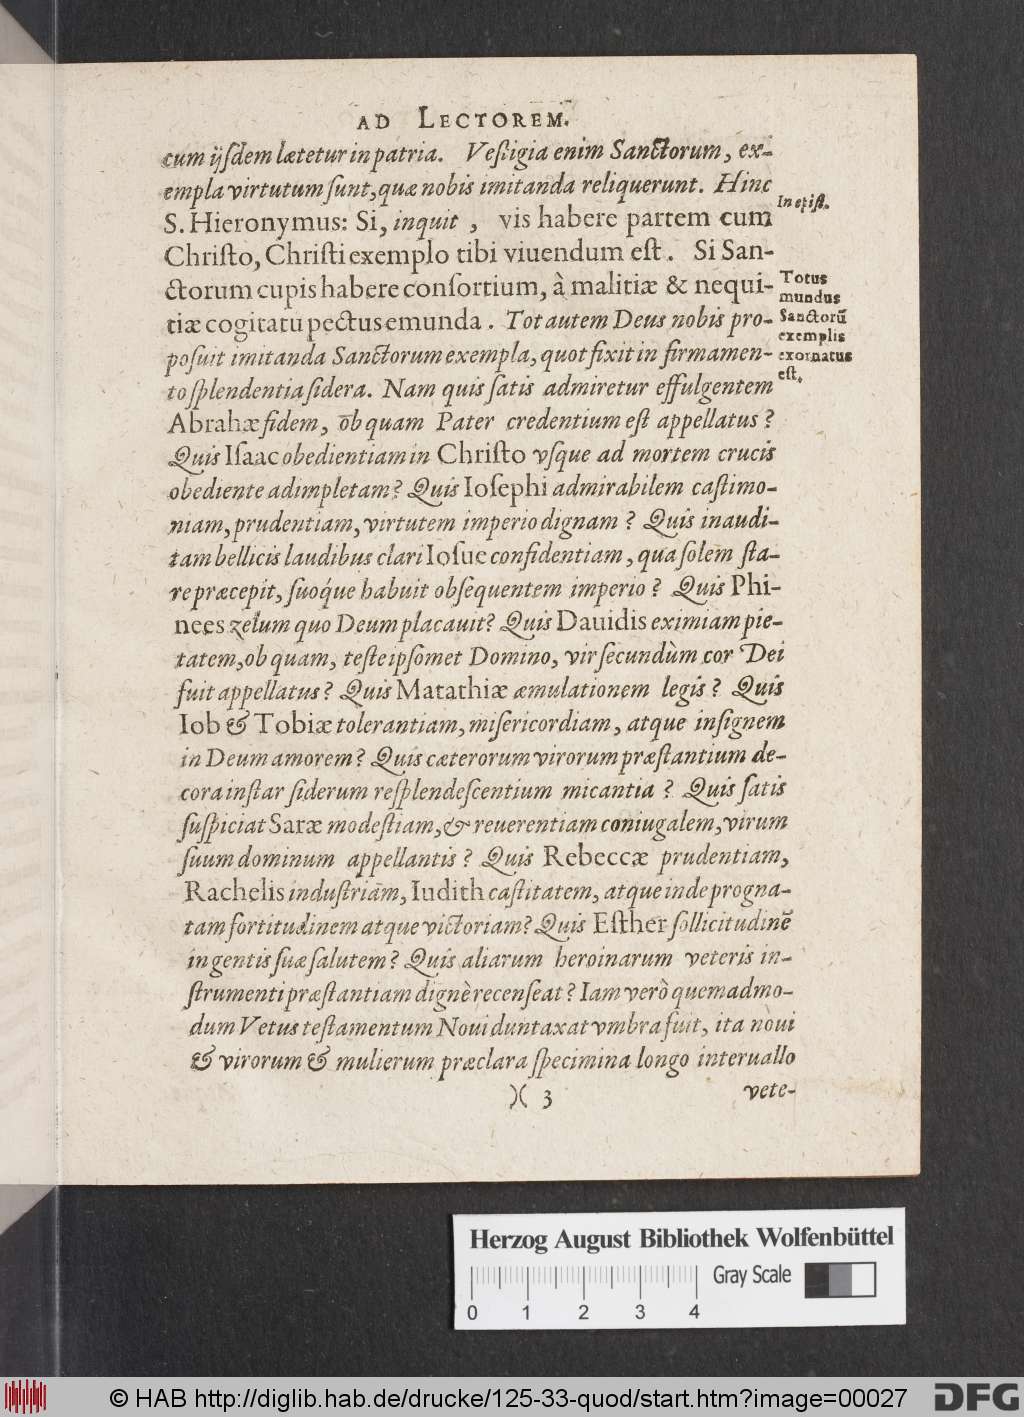 AD LECTOREM.
cum ijſdem lætetur in patria. Veſtigia enim Sanctorum, ex-
empla virtutum ſunt, quæ nobis imitanda reliquerunt. Hinc
In epiſt.
S. Hieronymus: Si, inquit, vis habere partem cum
Chriſto, Chriſti exemplo tibi viuendum eſt. Si San-
ctorum cupis habere conſortium, à malitiæ & nequi-
tiæ cogitatu pectus emunda. Tot autem Deus nobis pro-
poſuit imitanda Sanctorum exempla, quot fixit in firmamen-
to ſplendentia ſidera. Nam quis ſatis admiretur effulgentem
Totus
mundus
Sanctorū
exemplis
exornatus
eſt.
Abrahæ fidem, ob quam Pater credentium eſt appellatus?
Quis Iſaac obedientiam in Chriſto vſque ad mortem crucis
obediente adimpletam? Quis Ioſephi admirabilem caſtimo-
niam, prudentiam, virtutem imperio dignam? Quis inaudi-
tam bellicis laudibus clari Ioſue confidentiam, qua ſolem ſta-
re præcepit, ſuoq́ue habuit obſequentem imperio? Quis Phi-
nees zelum quo Deum placauit? Quis Dauidis eximiam pie-
tatem, ob quam, teſte ipſomet Domino, vir ſecundùm cor Dei
fuit appellatus? Quis Matathiæ æmulationem legis? Quis
Iob & Tobiæ tolerantiam, miſericordiam, atque inſignem
in Deum amorem? Quis cæterorum virorum præſtantium de-
cora inſtar ſiderum reſplendeſcentium micantia? Quis ſatis
ſuſpiciat Saræ modeſtiam, & reuerentiam coniugalem, virum
ſuum dominum appellantis? Quis Rebeccæ prudentiam,
Rachelis induſtriam, Iudith caſtitatem, atque inde progna-
tam fortitudinem atque victoriam? Quis Eſther ſollicitudinē
in gentis ſuæ ſalutem? Quis aliarum heroinarum veteris in-
ſtrumenti præſtantiam dignè recenſeat? Iam verò quemadmo-
dum Vetus teſtamentum Noui duntaxat vmbra fuit, ita noui
& virorum & mulierum præclara ſpecimina longo interuallo
)( 3
vete-
Herzog August Bibliothek Wolfenbüttel
Gray Scale
0 1 2 3 4
© HAB http://diglib.hab.de/drucke/125-33-quod/start.htm?image=00027
DFG